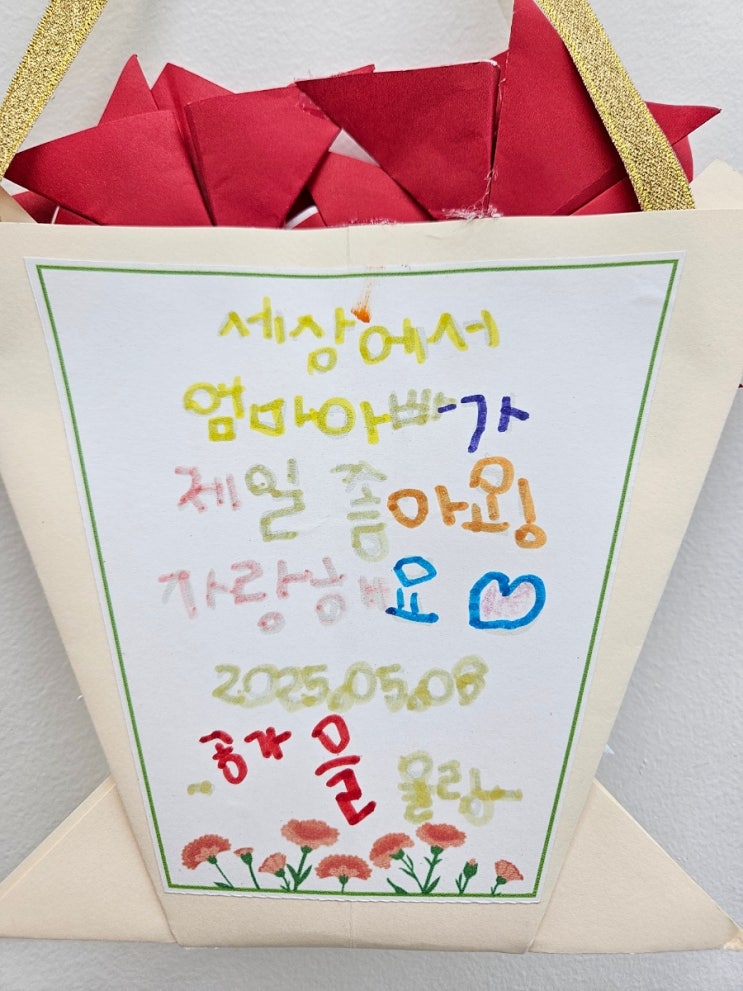 세상에서
엄마아빠가
제일 좋아용
사랑해요
2025.05.08
공가을